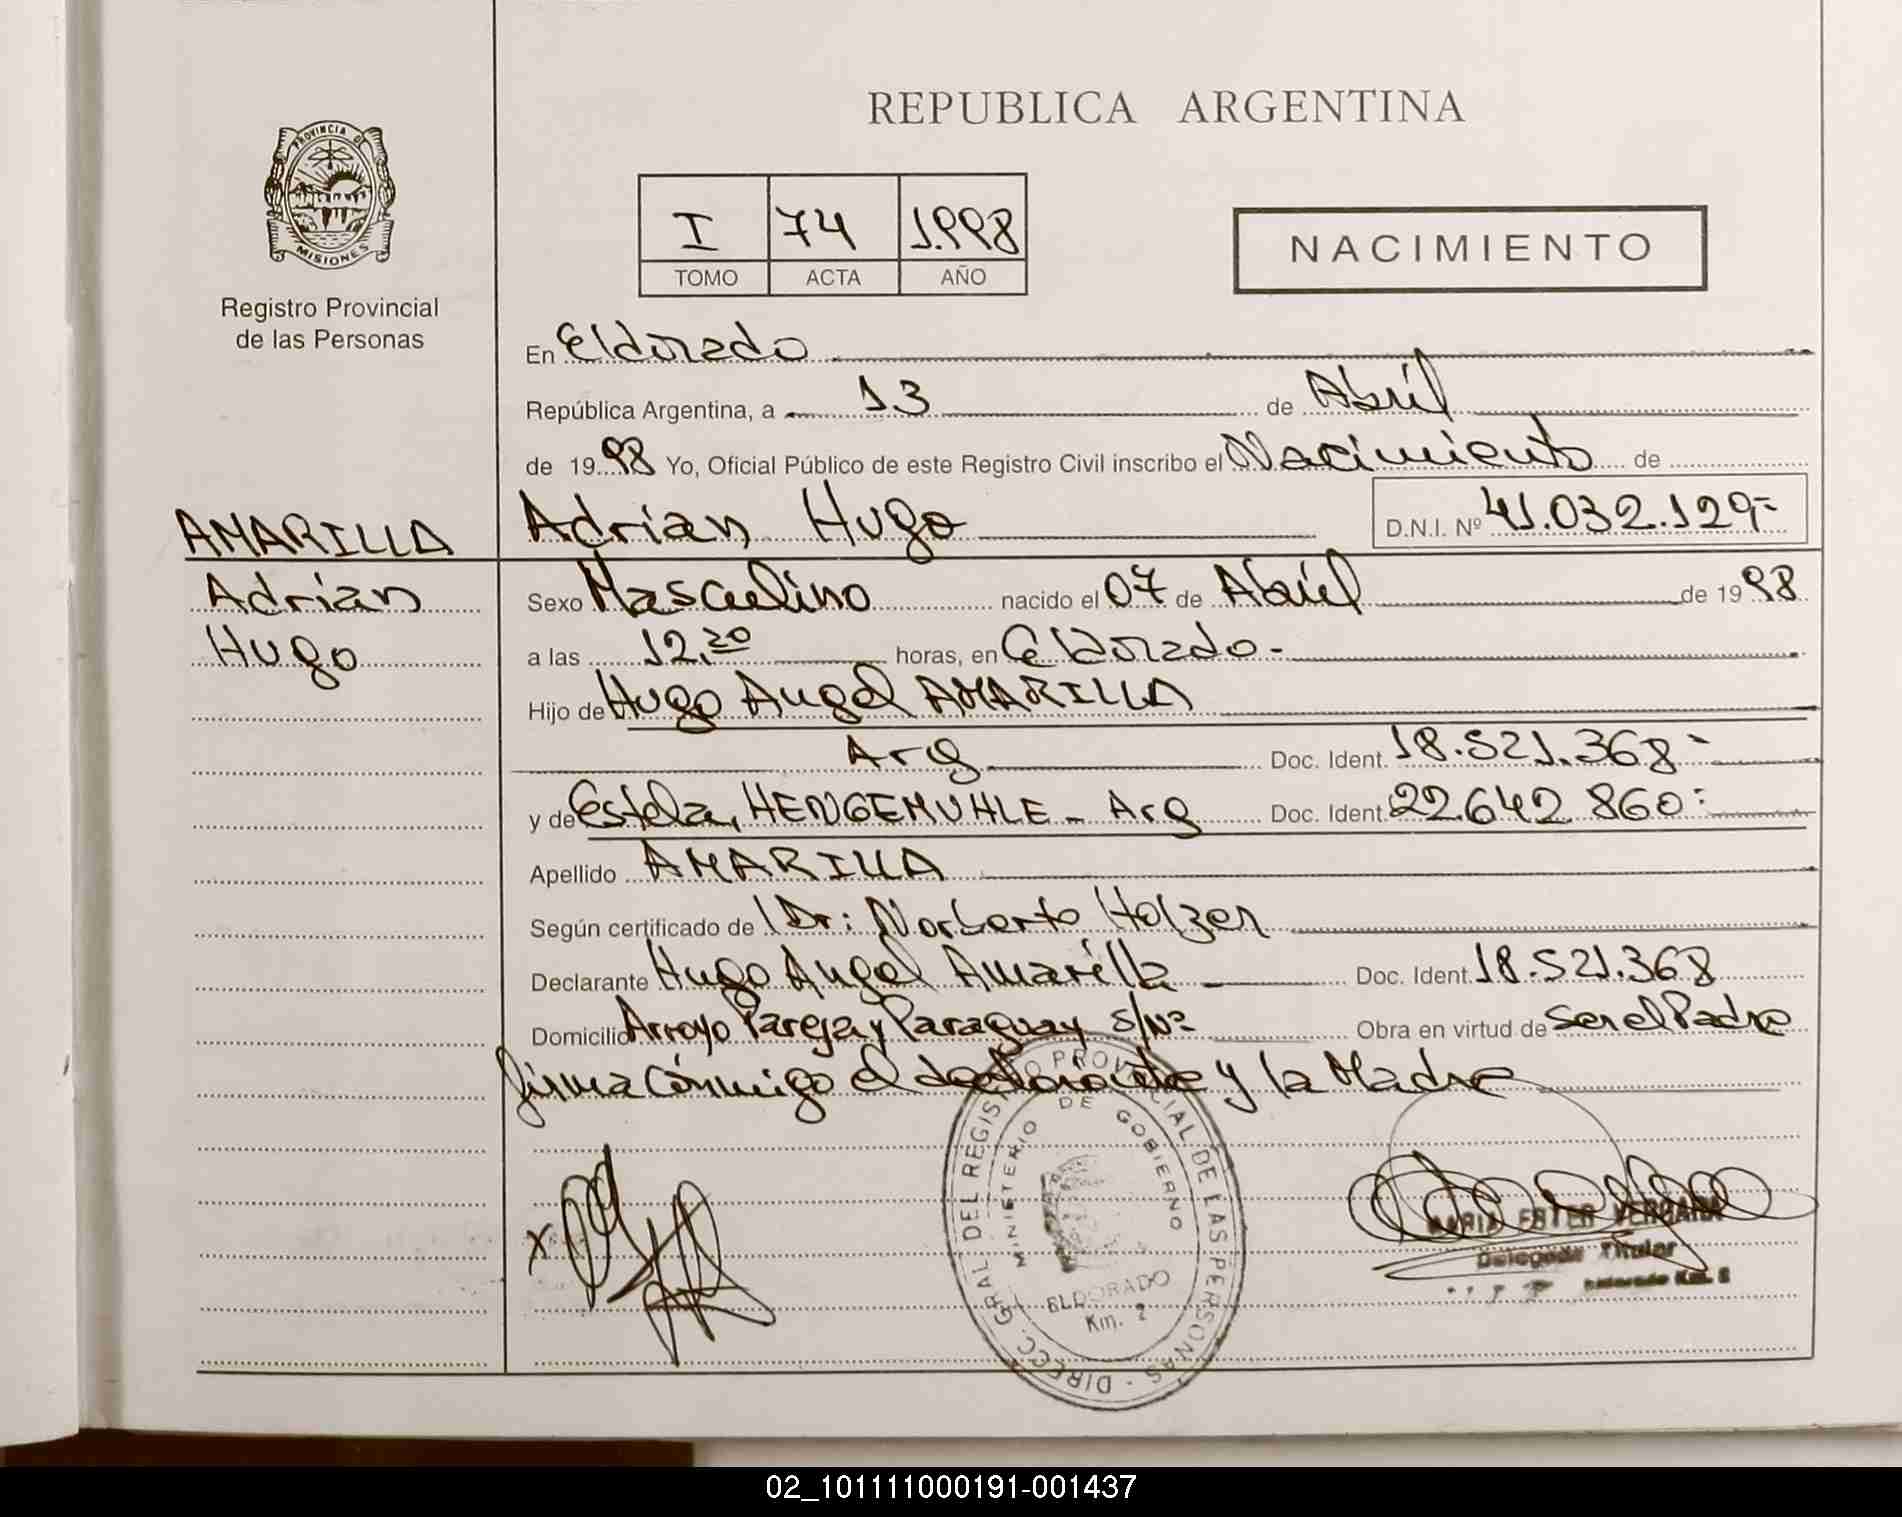 REPUBLICA ARGENTINA
PROVINCIA D
MISIONES
Registro Provincial
de las Personas
I 74 1.998
TOMO ACTA AÑO
NACIMIENTO
En Eldorado
República Argentina, a 13 de Abril
de 1998 Yo, Oficial Público de este Registro Civil inscribo el Nacimiento de
AMARILLA
Adrian Hugo D.N.I. Nº 41.032.129-
Adrian
Hugo
Sexo Masculino nacido el 07 de Abril de 1998
a las 12,20 horas, en Eldorado-
Hijo de Hugo Angel AMARILLA
Arg Doc. Ident. 18.521.368-
y de Estela, HENGEMUHLE - Arg Doc. Ident. 22.642.860-
Apellido AMARILLA
Según certificado de Dr: Norberto Holzer
Declarante Hugo Angel Amarilla Doc. Ident. 18.521.368
Domicilio Arroyo Pareja y Paraguay S/Nº Obra en virtud de ser el Padre
firma cónmigo el declarante y la Madre
DIRECC. GRAL DEL REGISTRO PROVINCIAL DE LAS PERSONAS
MINISTERIO DE GOBIERNO
ELDORADO
Km. 2
MARIA ESTER VERGARA
Delegada Titular
Eldorado Km. 2
02_101111000191-001437